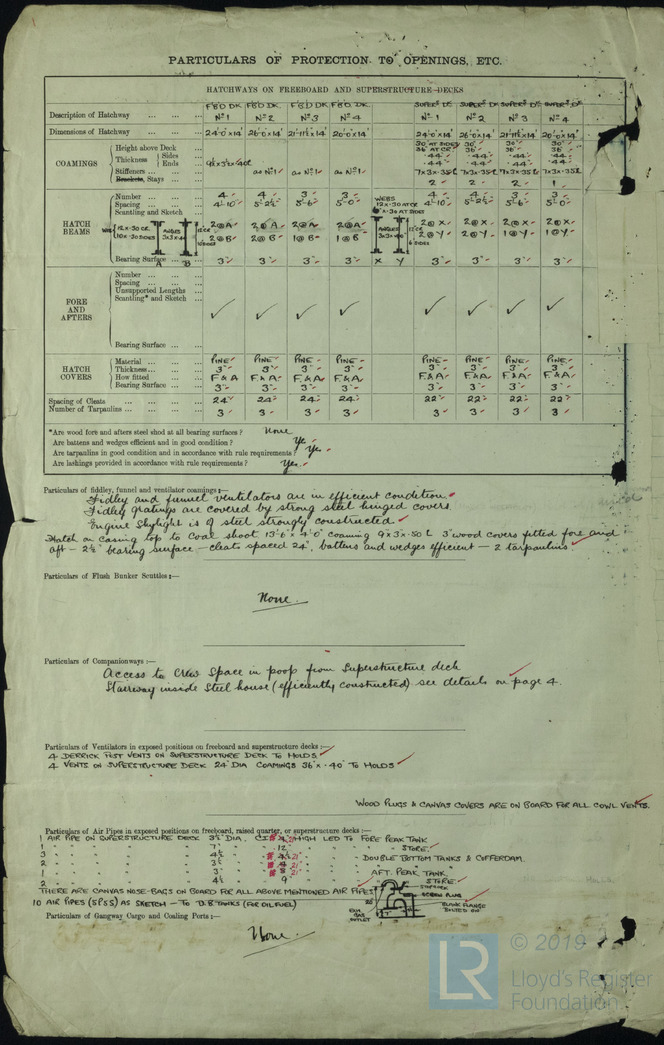 PARTICULARS OF PROTECTION TO OPENINGS, ETC.
HATCHWAYS ON FREEBOARD AND SUPERSTRUCTURE DECKS
FBD DK FBD DK. FBD DK FBD DK. SUPERS DK SUPERS DK SUPERS DK SUPERS DK
Description of Hatchway ... ... ... Nº 1 Nº 2 Nº 3 Nº 4 Nº 1 Nº 2 Nº 3 Nº 4
Dimensions of Hatchway ... ... ... 24'-0"x14' 26'-0"x14' 20'-0"x14' 24'-0"x14' 26'-0"x14' 20'-0"x14'
COAMINGS
Height above Deck ... 30" AT SIDES 30" 30" 30"
36" AT CR 36" 36" 36"
Thickness { Sides ·44" ·44" ·44" ·44"
Ends ·44" ·44" ·44" ·44"
Stiffeners ... ... as Nº 1 as Nº 1 as Nº 1 7x3x·35
Brackets, Stays ... ... 2 2 2 1
HATCH BEAMS
Number ... ... ... 4 4 3 3 4 4 3 3
Spacing ... ... ... 4'-10" 5'-2½" 5'-6" 5'-0" 4'-10" 5'-2½" 5'-6" 5'-0"
Scantling and Sketch ...
WEBS 12 x ·30 AT CR
x ·30 AT SIDES
12 x ·50 CR
10 x ·30 SIDES
ANGLES
2@A 2@A 2@A 2@A 2@X 2@X 2@X 2@X
2@B 2@B 1@B 1@B 2@Y 2@Y 1@Y 1@Y
A B X Y
Bearing Surface ... ... 3" 3" 3" 3" 3" 3" 3" 3"
FORE AND AFTERS
Number ... ... ...
Spacing ... ... ...
Unsupported Lengths ...
Scantling* and Sketch ...
Bearing Surface ... ...
HATCH COVERS
Material ... ... ... PINE PINE PINE PINE PINE PINE PINE PINE
Thickness ... ... ... 3" 3" 3" 3" 3" 3" 3" 3"
How fitted ... ... ... F & A F & A F & A F & A F & A F & A F & A F & A
Bearing Surface ... ... 3" 3" 3" 3" 3" 3" 3" 3"
Spacing of Cleats ... ... ... ... 24" 24" 24" 24" 22" 22" 22" 22"
Number of Tarpaulins ... ... ... 3 3 3 3 3 3 3 3
*Are wood fore and afters steel shod at all bearing surfaces? None
Are battens and wedges efficient and in good condition? Yes
Are tarpaulins in good condition and in accordance with rule requirements? Yes
Are lashings provided in accordance with rule requirements? Yes
Particulars of fiddley, funnel and ventilator coamings:—
Fidley and funnel ventilators are in efficient condition.
Fidley gratings are covered by strong steel hinged covers.
Engine Skylight is of steel strongly constructed
Hatch on casing top to Coal shoot 13'-6" x 4'-0" coaming 9 x 3 x ·50 3" wood covers fitted fore and
aft — 2½" bearing surface — cleats spaced 24", battens and wedges efficient — 2 tarpaulins.
Particulars of Flush Bunker Scuttles:—
None.
Particulars of Companionways:—
Access to Crew Space in poop from Superstructure deck
Stairway inside Steel house (efficiently constructed) see details on page 4.
Particulars of Ventilators in exposed positions on freeboard and superstructure decks:—
4 DERRICK POST VENTS ON SUPERSTRUCTURE DECK TO HOLDS
4 VENTS ON SUPERSTRUCTURE DECK 24" DIA COAMINGS 36" x ·40" TO HOLDS
WOOD PLUGS & CANVAS COVERS ARE ON BOARD FOR ALL COWL VENTS.
Particulars of Air Pipes in exposed positions on freeboard, raised quarter, or superstructure decks:—
1 AIR PIPE ON SUPERSTRUCTURE DECK 3½" DIA. HIGH LED TO FORE PEAK TANK
1 " " " " 7" " 12" " " STORE.
3 " " " " 4½" " 21" " DOUBLE BOTTOM TANKS & COFFERDAM.
2 " " " " 3½" "
1 " " " " 3" " 21" " AFT. PEAK TANK.
2 " " " " 4½" " 9" " " STORE
THERE ARE CANVAS NOSE-BAGS ON BOARD FOR ALL ABOVE MENTIONED AIR PIPES
10 AIR PIPES (5P 5S) AS SKETCH — TO D.B. TANKS (FOR OIL FUEL)
SCREW PLUG
BLANK FLANGE
BOLTED ON
GAS
OUTLET
Particulars of Gangway Cargo and Coaling Ports:—
None.
LR
© 2019
Lloyd's Register
Foundation